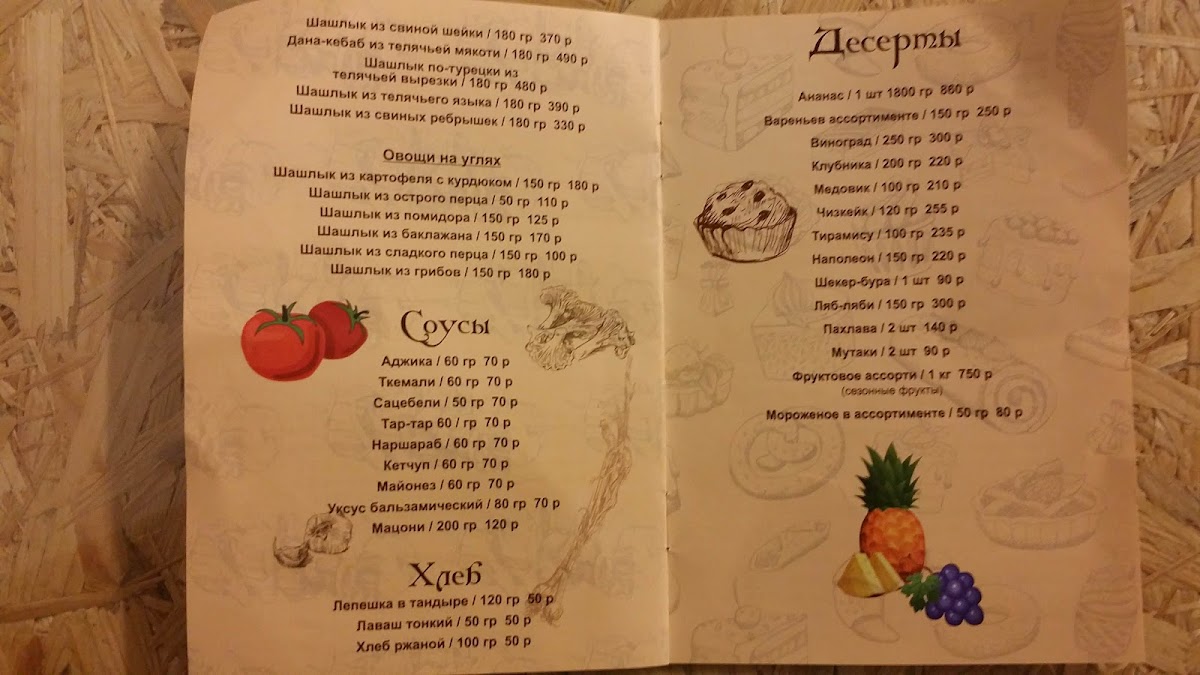 Шашлык из свиной шейки / 180 гр 370 р
Дана-кебаб из телячьей мякоти / 180 гр 490 р
Шашлык по-турецки из
телячьей вырезки / 180 гр 480 р
Шашлык из телячьего языка / 180 гр 390 р
Шашлык из свиных ребрышек / 180 гр 330 р
Овощи на углях
Шашлык из картофеля с курдюком / 150 гр 180 р
Шашлык из острого перца / 50 гр 110 р
Шашлык из помидора / 150 гр 125 р
Шашлык из баклажана / 150 гр 170 р
Шашлык из сладкого перца / 150 гр 100 р
Шашлык из грибов / 150 гр 180 р
Соусы
Аджика / 60 гр 70 р
Ткемали / 60 гр 70 р
Сацебели / 50 гр 70 р
Тар-тар 60 / гр 70 р
Наршараб / 60 гр 70 р
Кетчуп / 60 гр 70 р
Майонез / 60 гр 70 р
Уксус бальзамический / 80 гр 70 р
Мацони / 200 гр 120 р
Хлеб
Лепешка в тандыре / 120 гр 50 р
Лаваш тонкий / 50 гр 50 р
Хлеб ржаной / 100 гр 50 р
Десерты
Ананас / 1 шт 1800 гр 860 р
Вареньев ассортименте / 150 гр 250 р
Виноград / 250 гр 300 р
Клубника / 200 гр 220 р
Медовик / 100 гр 210 р
Чизкейк / 120 гр 255 р
Тирамису / 100 гр 235 р
Наполеон / 150 гр 220 р
Шекер-бура / 1 шт 90 р
Ляб-ляби / 150 гр 300 р
Пахлава / 2 шт 140 р
Мутаки / 2 шт 90 р
Фруктовое ассорти / 1 кг 750 р
(сезонные фрукты)
Мороженое в ассортименте / 50 гр 80 р